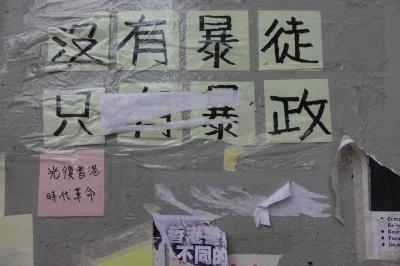 沒有暴徒
只有暴政
光復香港
時代革命
香港
不同的